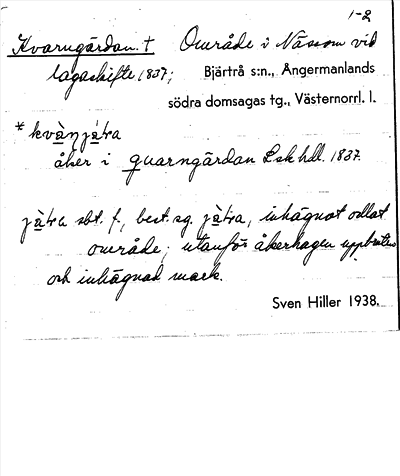 1-2
Kvarngärdan. † Område i Nässom vid
lagaskifte 1837; Bjärtrå s:n., Ångermanlands
södra domsagas tg., Västernorrl. l.
* kvàṇjà̤ra
åker i quarngärdan Lskhdl. 1837.
sbt. f., best. sg. inhägnat odlat
område; utanför åkerhagen uppbruten
och inhägnad mark.
Sven Hiller 1938.